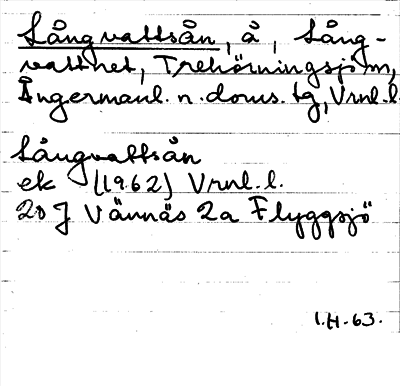 Långvattsån, å, Lång-
vattnet, Trehörningsjö sn,
Ångermanl. n. doms. tg, Vrnl.l.
Långvattsån
ek (1962) Vrnl.l.
20 J Vännäs 2a Flyggsjö
I.H-63.